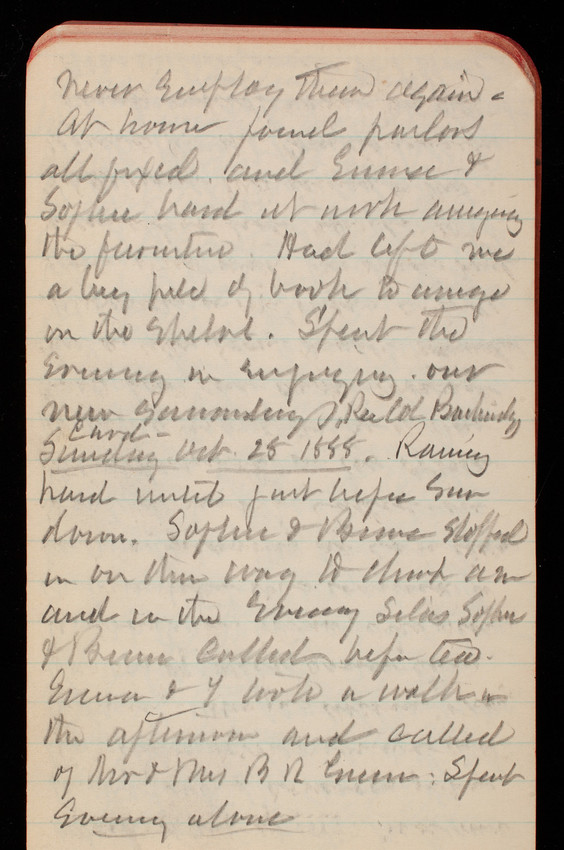 never employ them again -
At home found parlors
all fixed. and Emma &
Sophie hard at work arranging
the furniture. Had left me
a big pile of books to arrange
on the shelves. Spent the
Evening in enjoying our
new surroundings, Recd Birthday
Card -
Sunday Oct 28 1888. Raining
hard until just before Sun
down. Sophie & Bruce stopped
in on their way to church am
and in the Evening Silas Sophie
& Bruce called before tea.
Emma & I took a walk in
the afternoon and called
on Mr & Mrs B R Green. Spent
Evening alone